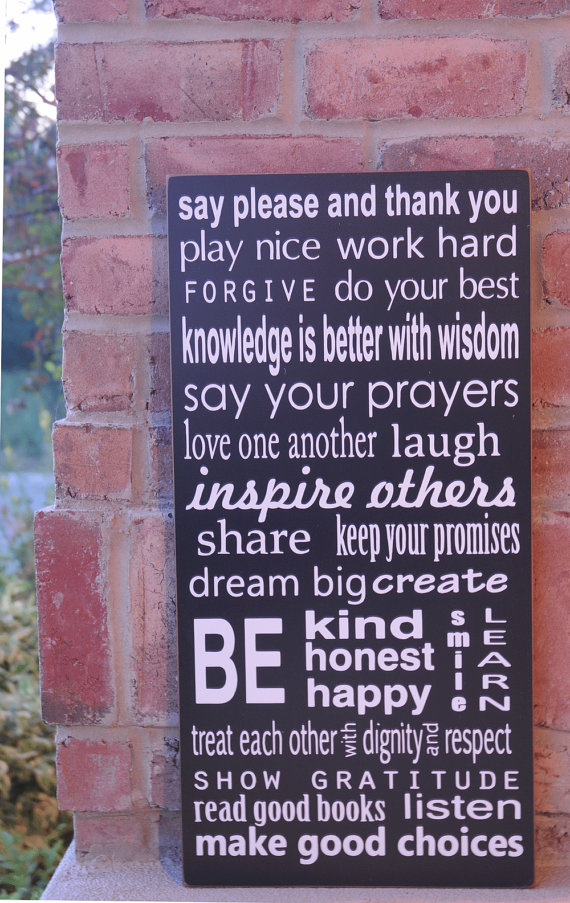 say please and thank you
play nice work hard
FORGIVE do your best
knowledge is better with wisdom
say your prayers
love one another laugh
inspire others
share keep your promises
dream big create
BE kind honest happy smile LEARN
treat each other with dignity and respect
SHOW GRATITUDE
read good books listen
make good choices